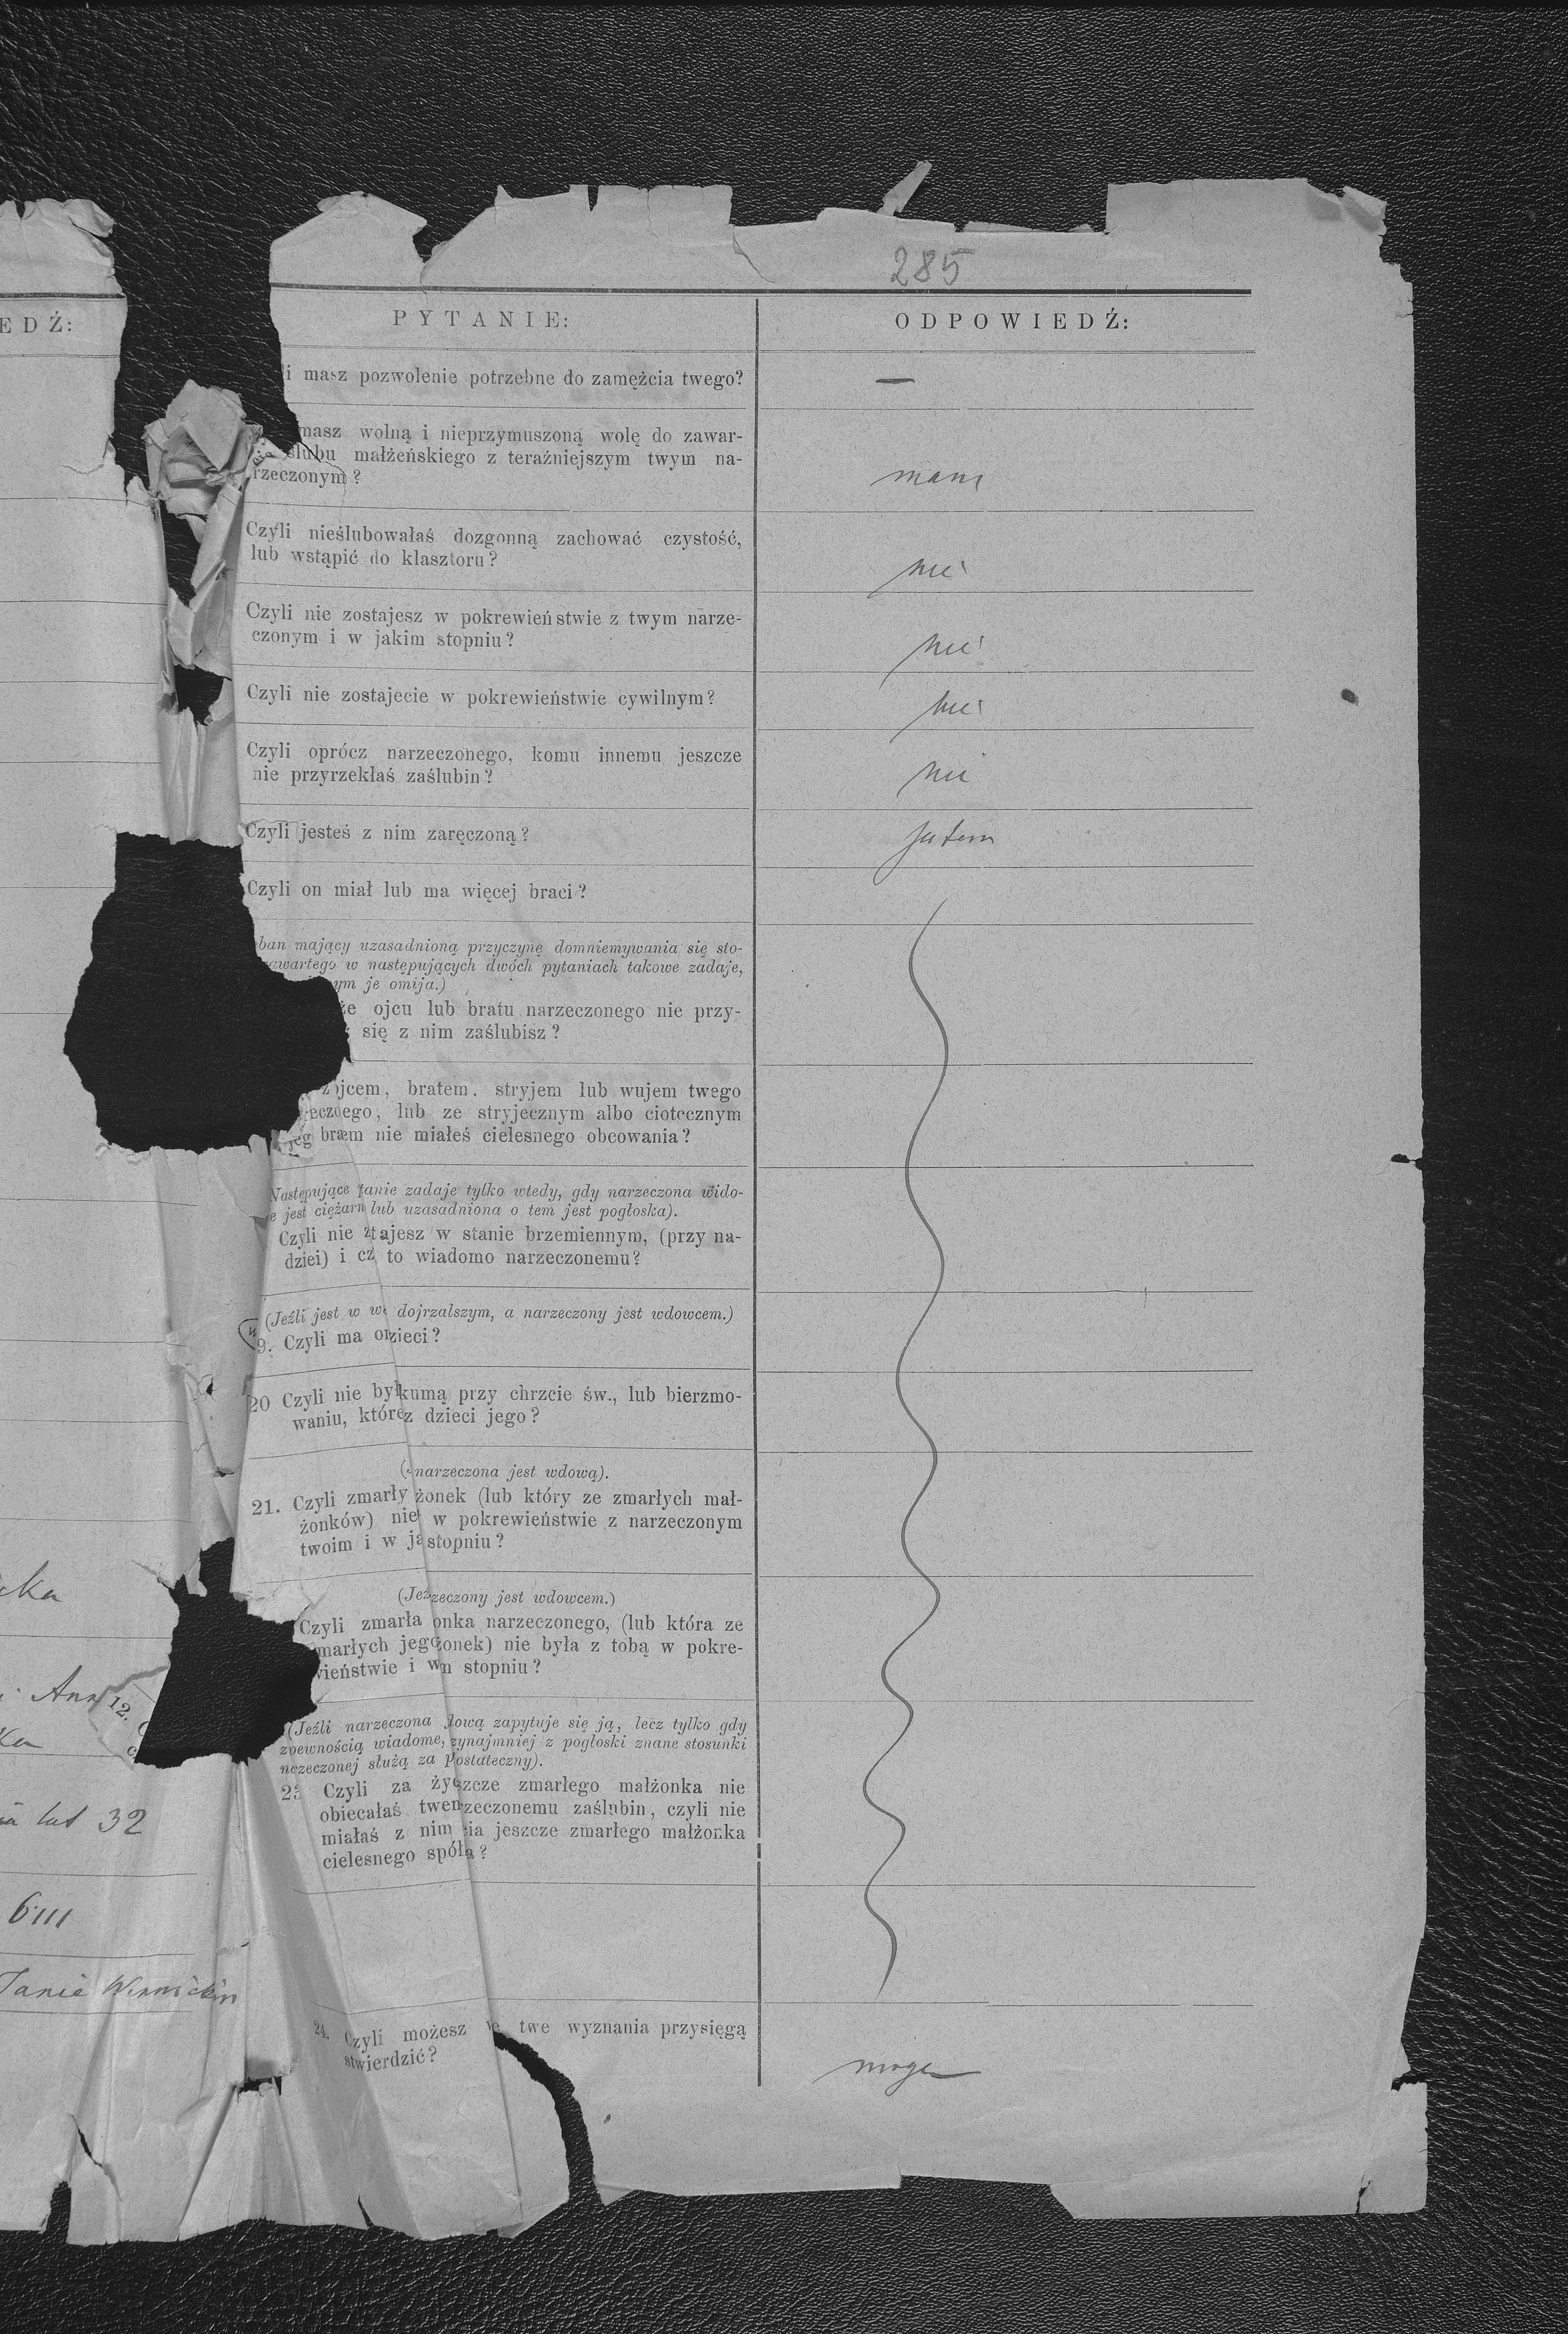 285
EDŹ:
cka
Ann
12.
lat 32
6 III
Janie
PYTANIE:
ODPOWIEDŹ:
i masz pozwolenie potrzebne do zamężcia twego?
—
masz wolną i nieprzymuszoną wolę do zawar-
ślubu małżeńskiego z teraźniejszym twym na-
rzeczonym?
mam
Czyli nieślubowałaś dozgonną zachować czystość,
lub wstąpić do klasztoru?
nie
Czyli nie zostajesz w pokrewieństwie z twym narze-
czonym i w jakim stopniu?
nie
Czyli nie zostajecie w pokrewieństwie cywilnym?
nie
Czyli oprócz narzeczonego, komu innemu jeszcze
nie przyrzekłaś zaślubin?
nie
Czyli jesteś z nim zaręczoną?
jestem
Czyli on miał lub ma więcej braci?
ban mający uzasadnioną przyczynę domniemywania się sto-
awartego w następujących dwóch pytaniach takowe zadaje,
ym je omija.)
że ojcu lub bratu narzeczonego nie przy-
się z nim zaślubisz?
ojcem, bratem, stryjem lub wujem twego
eczoego, lub ze stryjecznym albo ciotecznym
jeg bratem nie miałeś cielesnego obcowania?
Następujące tanie zadaje tylko wtedy, gdy narzeczona wido-
e jest ciężarn lub uzasadniona o tem jest pogłoska).
Czyli nie ztajesz w stanie brzemiennym, (przy na-
dziei) i cz to wiadomo narzeczonemu?
(Jeźli jest w we dojrzalszym, a narzeczony jest wdowcem.)
9. Czyli ma on zieci?
20 Czyli nie był kumą przy chrzcie św., lub bierzmo-
waniu, które z dzieci jego?
( narzeczona jest wdową).
21. Czyli zmarły żonek (lub który ze zmarłych mał-
żonków) nie w pokrewieństwie z narzeczonym
twoim i w ja stopniu?
(Jeź zeczony jest wdowcem.)
Czyli zmarła onka narzeczonego, (lub która ze
marłych jego onek) nie była z tobą w pokre-
wieństwie i w m stopniu?
(Jeźli narzeczona dową zapytuje się ją, lecz tylko gdy
zpewnością wiadome, zynajmniej z pogłoski znane stosunki
nrzeczonej służą za postateczny).
23 Czyli za życ szcze zmarłego małżonka nie
obiecałaś twem rzeczonemu zaślubin, czyli nie
miałaś z nim cia jeszcze zmarłego małżonka
cielesnego spółą?
24. Czyli możesz te twe wyznania przysięgą
stwierdzić?
mogę